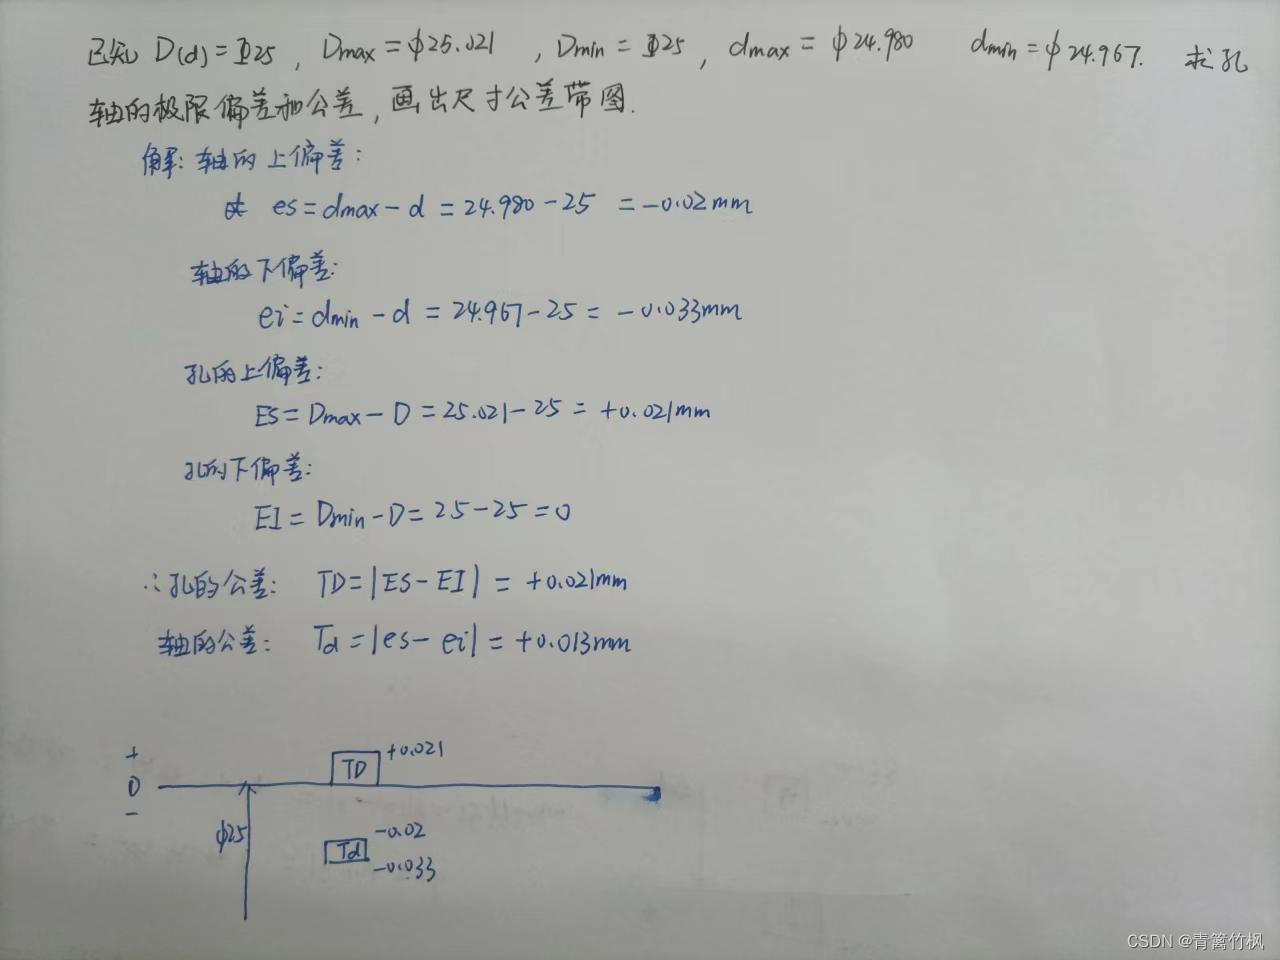 已知 D(d)=Φ25, Dmax=φ25.021, Dmin=Φ25, dmax=φ24.980 dmin=φ24.967. 求孔
轴的极限偏差和公差,画出尺寸公差带图.
解: 轴的上偏差:
es=dmax-d=24.980-25=-0.02mm
轴的下偏差:
ei=dmin-d=24.967-25=-0.033mm
孔的上偏差:
ES=Dmax-D=25.021-25=+0.021mm
孔的下偏差:
EI=Dmin-D=25-25=0
∴孔的公差: TD=|ES-EI|=+0.021mm
轴的公差: Td=|es-ei|=+0.013mm
+
0
-
TD
+0.021
φ25
Td
-0.02
-0.033
CSDN @青篱竹枫